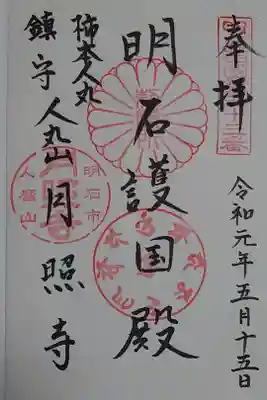 奉拝
令和元年五月十五日
明石護国殿
柿本人丸
鎮守
人丸山月照寺
明石市
人麿山